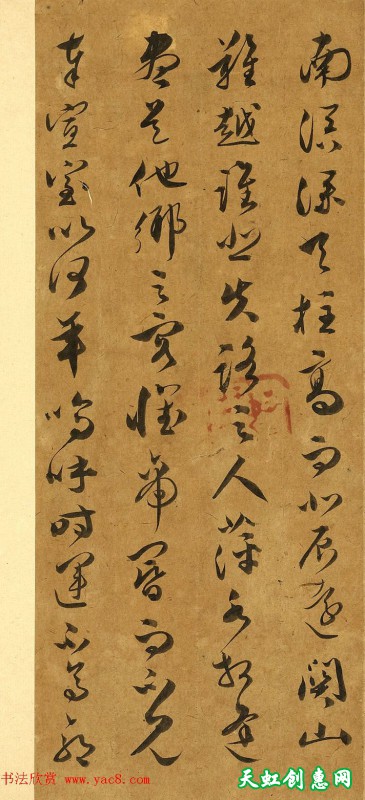 南溟深天柱高而北辰遠關山
難越誰悲失路之人萍水相逢
盡是他鄉之客懷帝閽而不見
奉宣室以何年嗚呼時運不齊命
书法欣赏 www.yac8.com
天虹创惠网